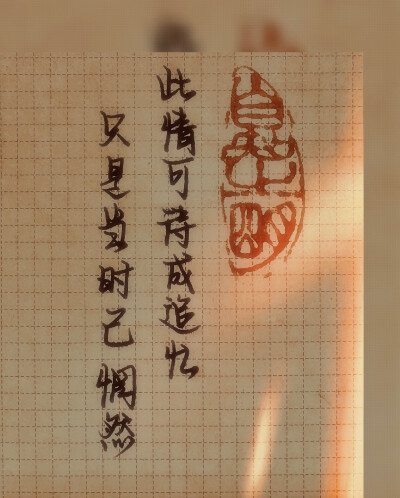 此情可诗成追忆
只是当时已惘然